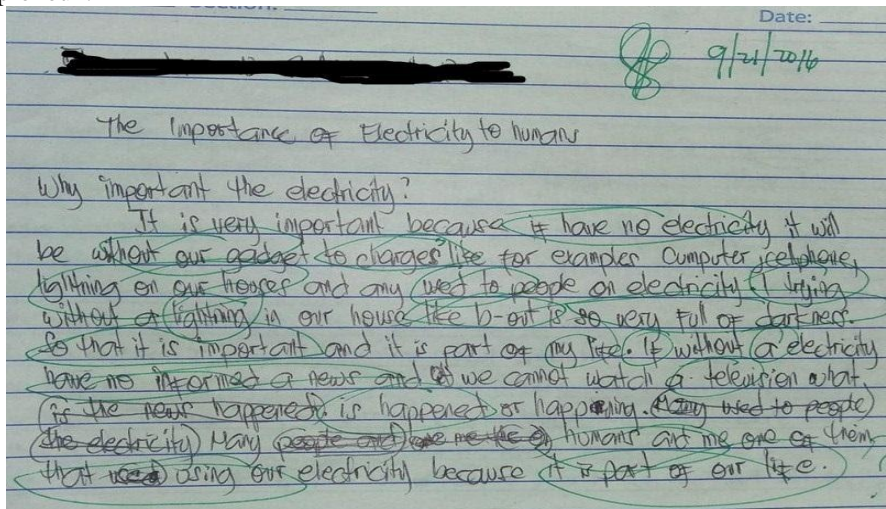 Date:
9/21/2016
The Importance of Electricity to humans
Why important the electricity?
It is very important because if have no electricity it will
be without our gadget to charges like for examples Cumputer, cellphone,
lightning on our houses and any used to people on electricity. I trying
without a lightning in our house like b-out is so very ful of darkness.
So that it is important and it is part of my life. If without a electricity
have no informed a news and we cannot watch a television what
is the news happened is happened or happening. Many used to people
the electricity Many people and humans and me one of them
that used using our electricity because it is part of our life.